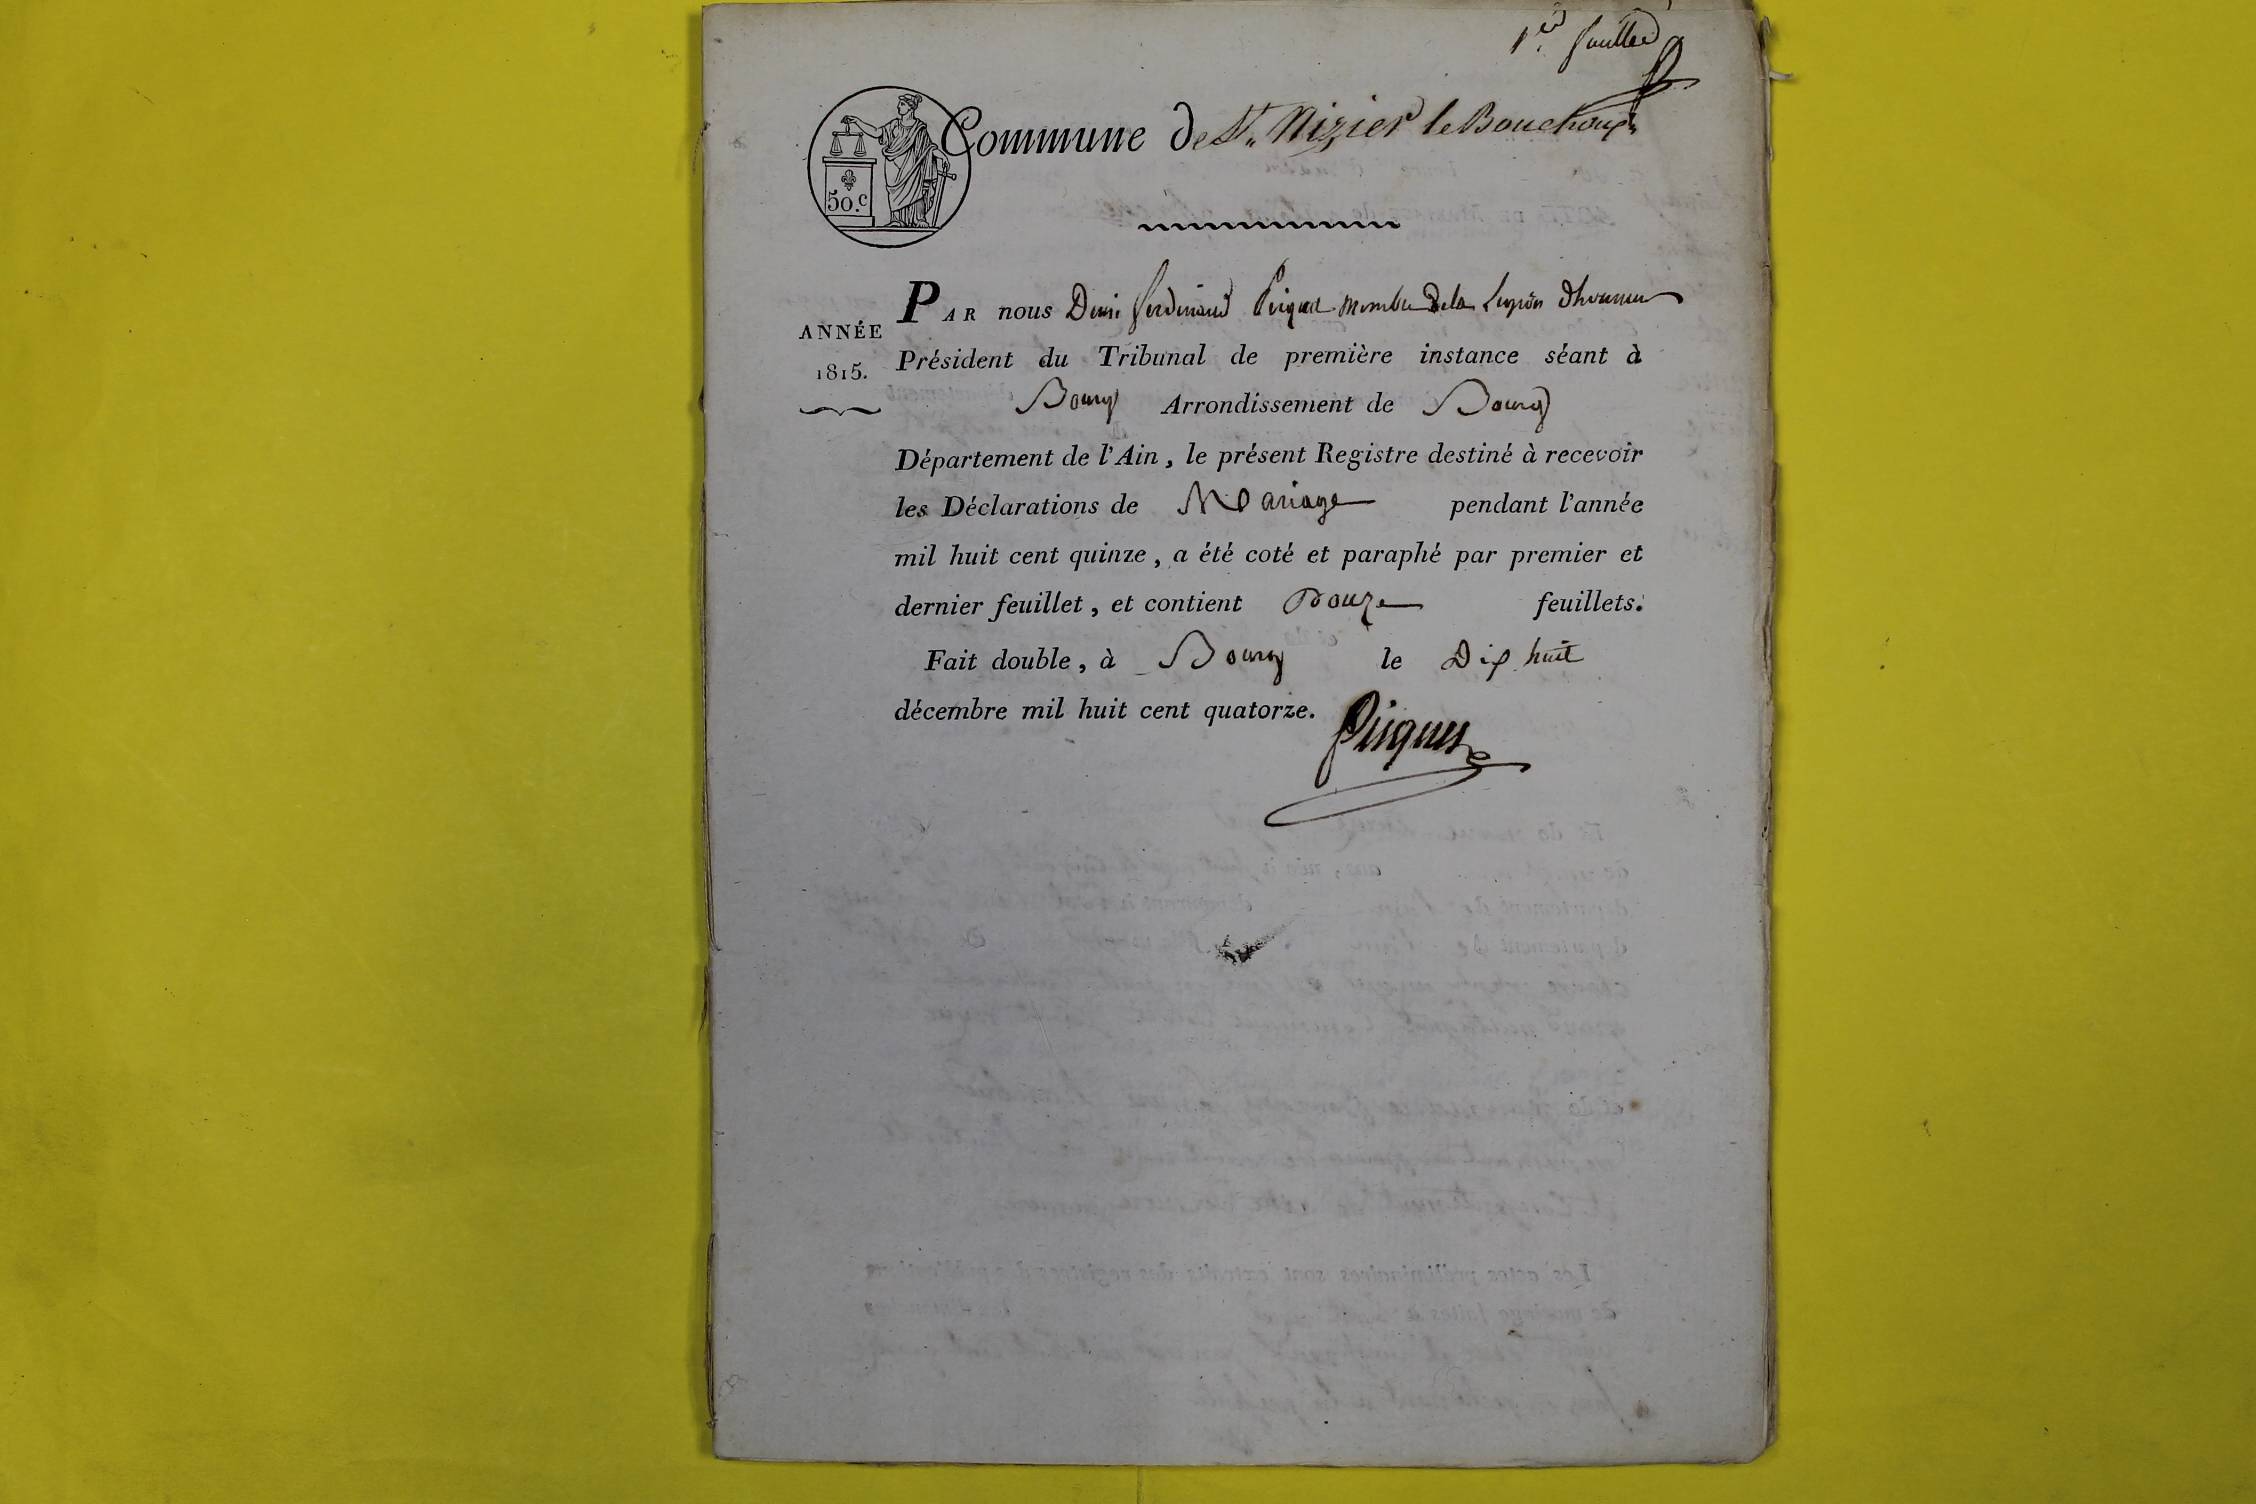 1er feuillet
Commune de St. Nizier le Bouchoux
50.c
PAR nous Denis ferdinand Picquet membre de la Legion dhonneur
ANNÉE
1815.
Président du Tribunal de première instance séant à
Bourg Arrondissement de Bourg
Département de l'Ain, le présent Registre destiné à recevoir
les Déclarations de Mariage pendant l'année
mil huit cent quinze, a été coté et paraphé par premier et
dernier feuillet, et contient Douze feuillets.
Fait double, à Bourg le Dix huit
décembre mil huit cent quatorze.
Picquet